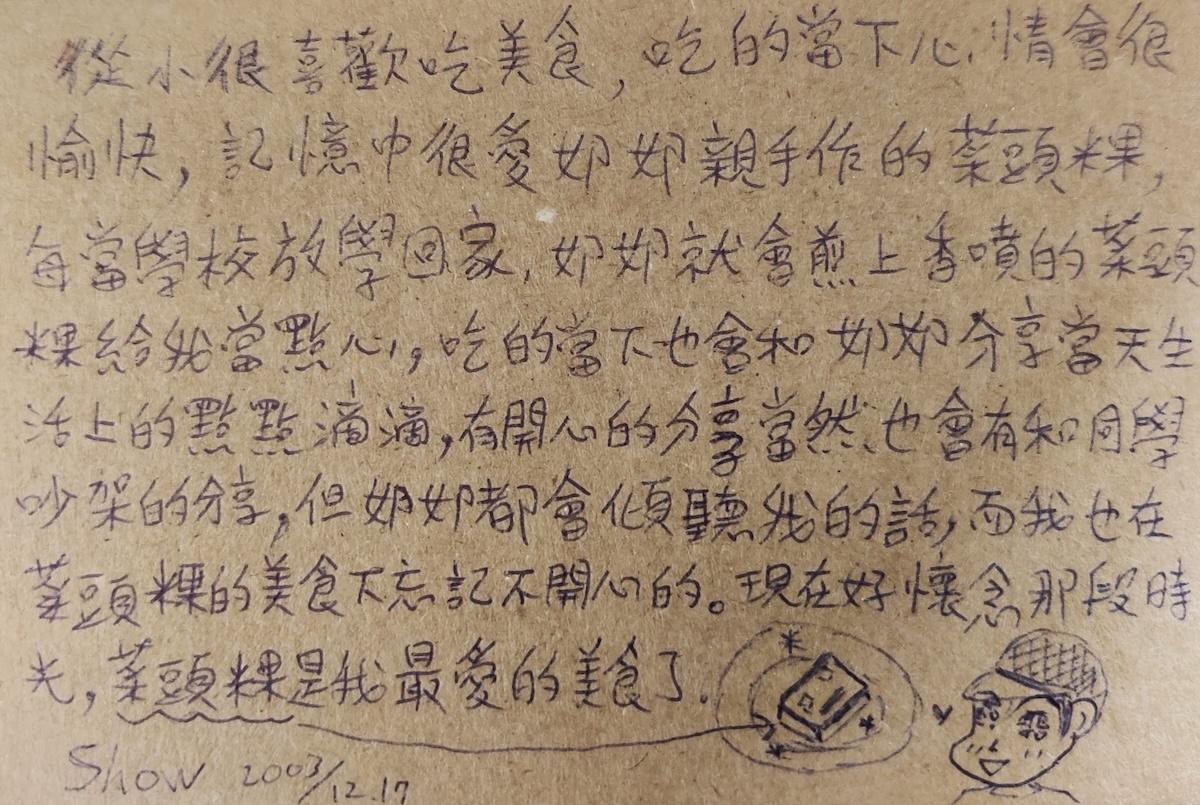 從小很喜歡吃美食，吃的當下心情會很
愉快，記憶中很愛奶奶親手作的菜頭粿，
每當學校放學回家，奶奶就會煎上香噴的菜頭
粿給我當點心，吃的當下也會和奶奶分享當天生
活上的點點滴滴，有開心的分享當然也會有和同學
吵架的分享，但奶奶都會傾聽我的話，而我也在
菜頭粿的美食下忘記不開心的。現在好懷念那段時
光，菜頭粿是我最愛的美食了．
Show 2003/12.17